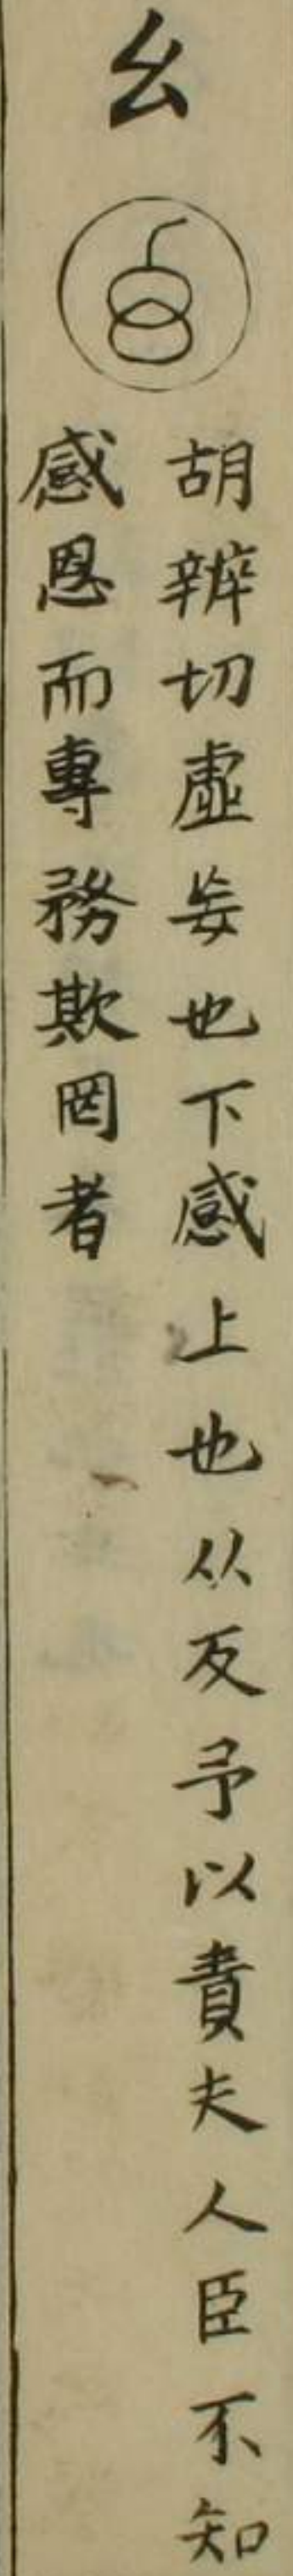 幺
胡辧切虛妄也下感上也从反予以責夫人臣不知
感恩而專務欺罔者